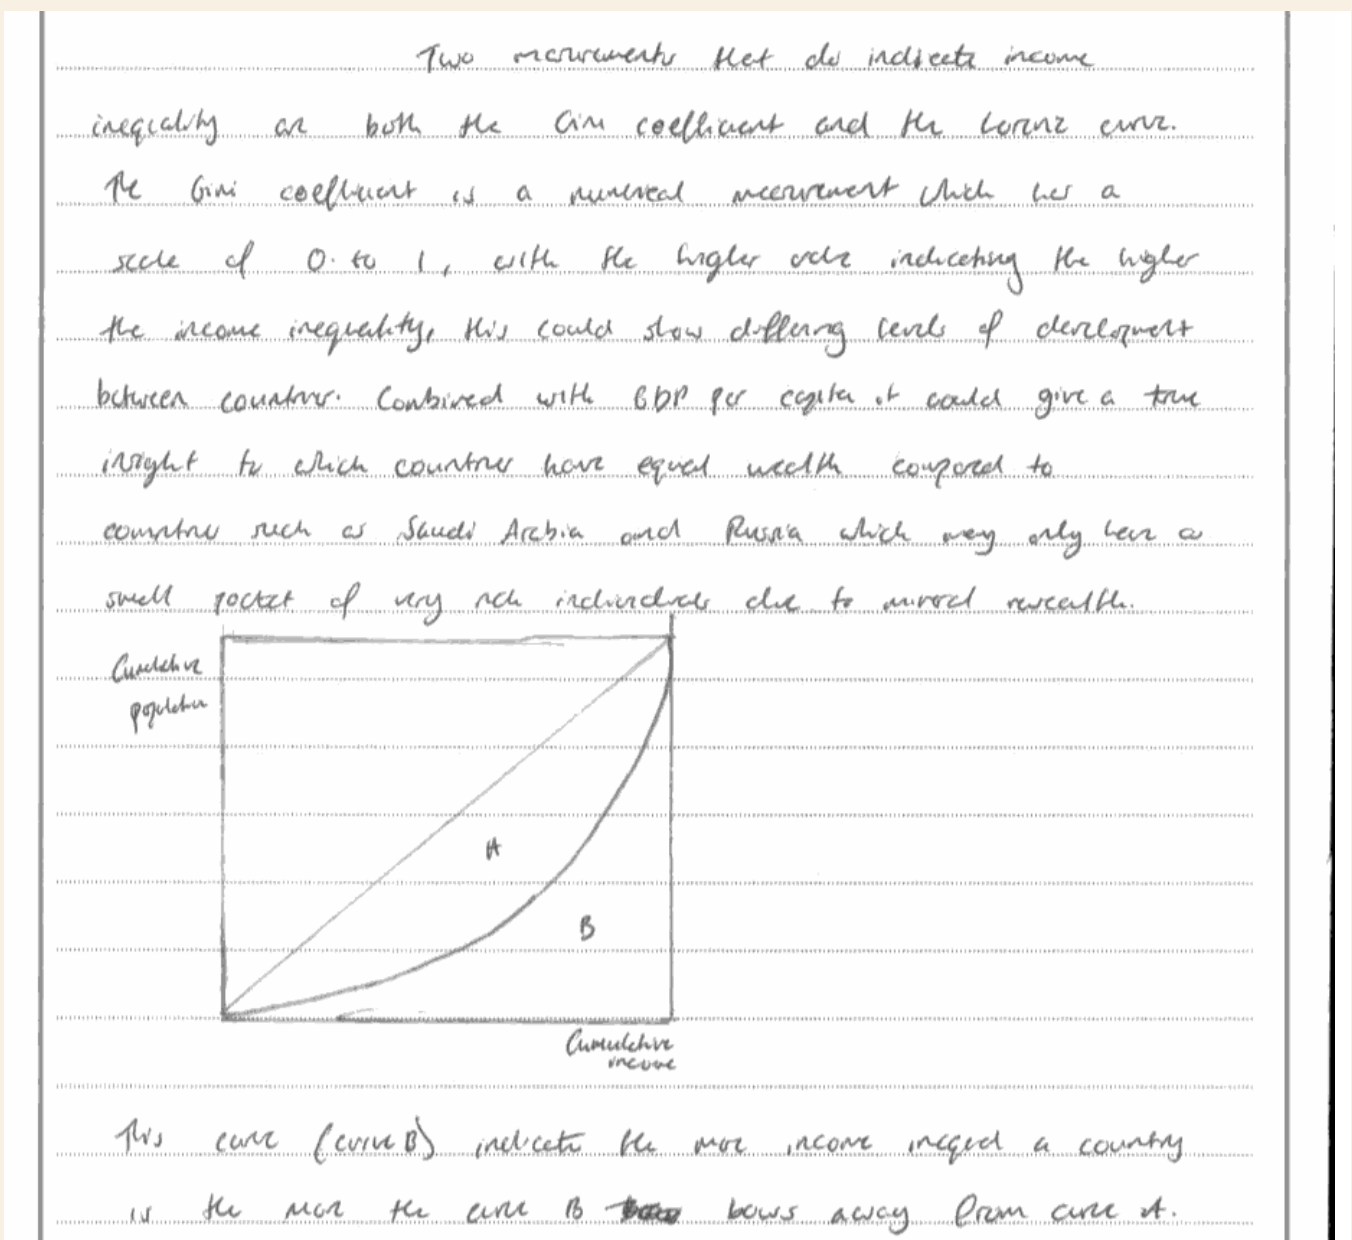 Two measurements that do indicate income
inequality are both the Gini coefficient and the Lorenz curve.
The Gini coefficient is a numerical measurement which has a
scale of 0 to 1, with the higher value indicating the higher
the income inequality, this could show differing levels of development
between countries. Combined with GDP per capita it could give a true
insight to which countries have equal wealth compared to
countries such as Saudi Arabia and Russia which may only have a
small pocket of very rich individuals due to mineral
Cumulative
population
A
B
Cumulative
income
This curve (curve B) indicate the more income inequal a country
is the more the curve B bows away from curve A.